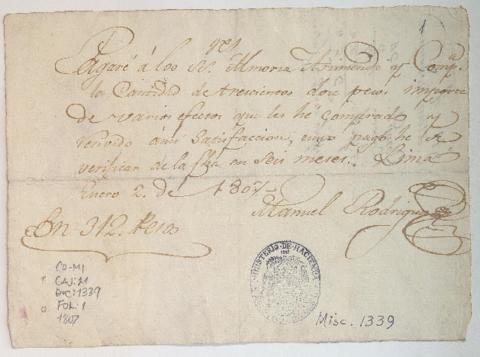 1
Pagaré á los Sres. y Comp.
la Cantidad de trescientos doce pesos importe
de varios efectos que les hé comprado y
recivido á mi satisfaccion, cuyo pago he de
verificar de la fha en seis meses.. Lima
Enero 2. de 1807
Manuel Rodriguez
Son 312. Pesos
CO-M1
CAJ: 21
DOC: 1339
FOL: 1
1807
MINISTERIO DE HACIENDA
Misc. 1339